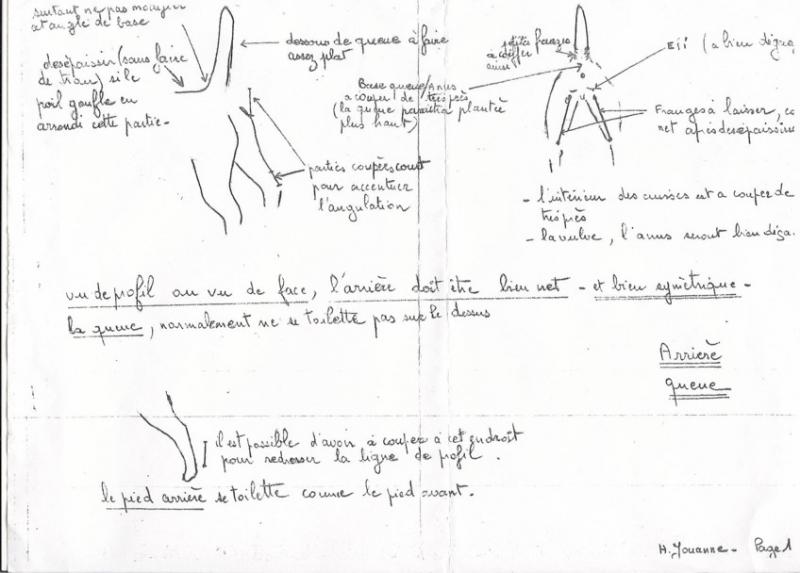 surtout ne pas
et angle de base
desépaissir (sans faire
de trou) si le
poil gonfle en
arrondi cette partie-
dessous de queue à faire
assez plat
Base queue/Anus
a couper de très près
(la queue paraitra plantée
plus haut)
parties coupées court
pour accentuer
l'angulation
petites franges
Eíí (a bien déga
Franges à laisser, co
net après desépaississ
- l'intérieur des cuisses est a couper de
très près
- la vulve, l'anus seront bien déga.
vu de profil ou vu de face, l'arrière doit être bien net - et bien symètrique -
la queue, normalement ne se toilette pas sur le dessus
Arrière
queue
il est possible d'avoir à couper à cet endroit
pour redresser la ligne de profil.
le pied arrière se toilette comme le pied avant.
H. Jouanne - Page 1